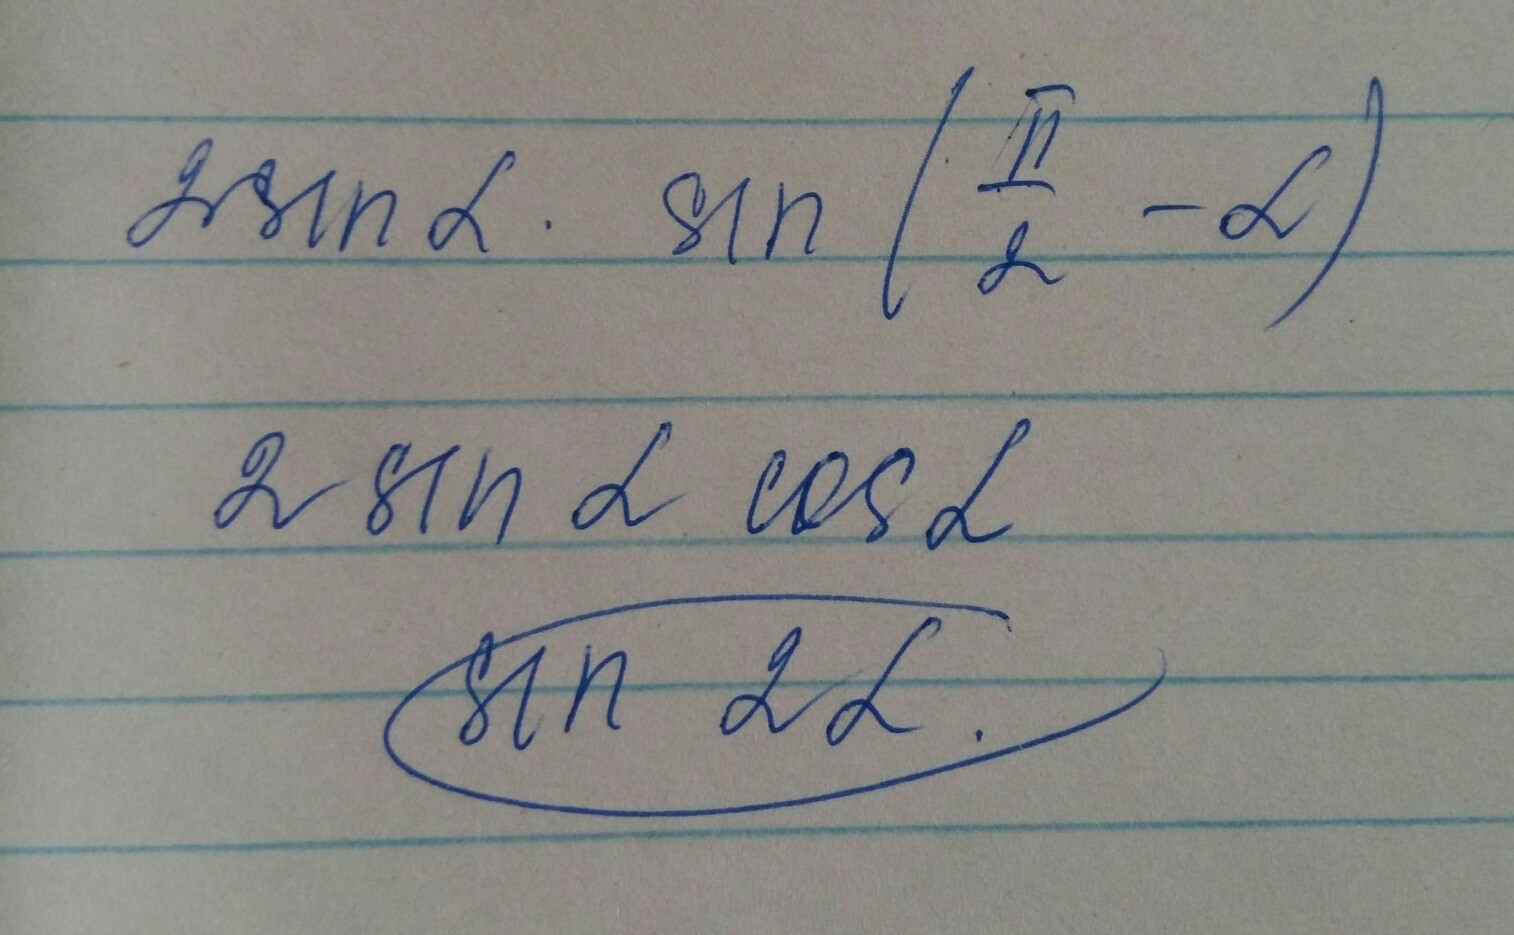 2 sin α · sin (π/2 - α)
2 sin α cos α
sin 2α.